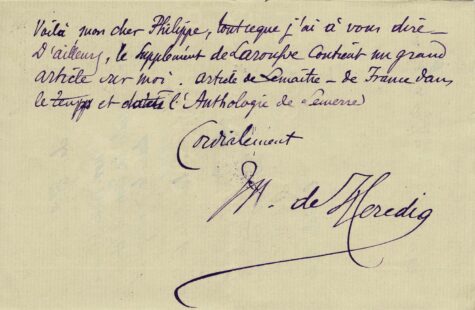 Voilà mon cher Philippe, tout ceque j'ai à vous dire –
D'ailleurs, le Supplément de Larousse Contient un grand
article sur moi. article de Lemaître – de France dans
le temps et l'Anthologie de Lemerre
Cordialement
JM. de Heredia